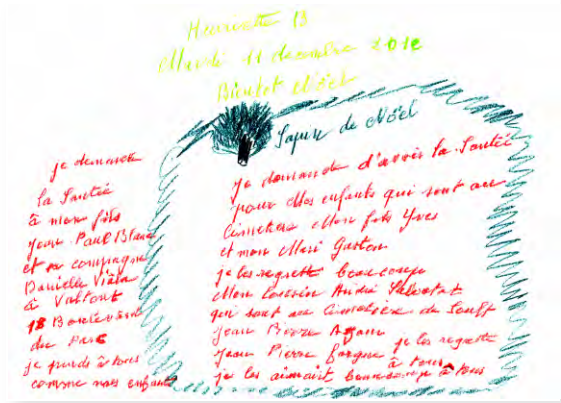 Henriette B
Mardi 11 decembre 2012
Bientot Noël
Sapin de Noël
je demande
la Santée
à mon fils
Jean Paul
et sa compagne
Danielle
à
18 Boulevard
du Parc
je pends à tous
comme mes enfants
je demande d'avoir la Santée
pour Mes enfants qui sont au
Cimetiere Mon fils Yves
et mon Mari Gaston
je les regrette beaucoup
Mon Cousin André
qui sont au Cimetière de
Jean
Jean Pierre je les regrette
à tous
je les aimait beaucoup à tous